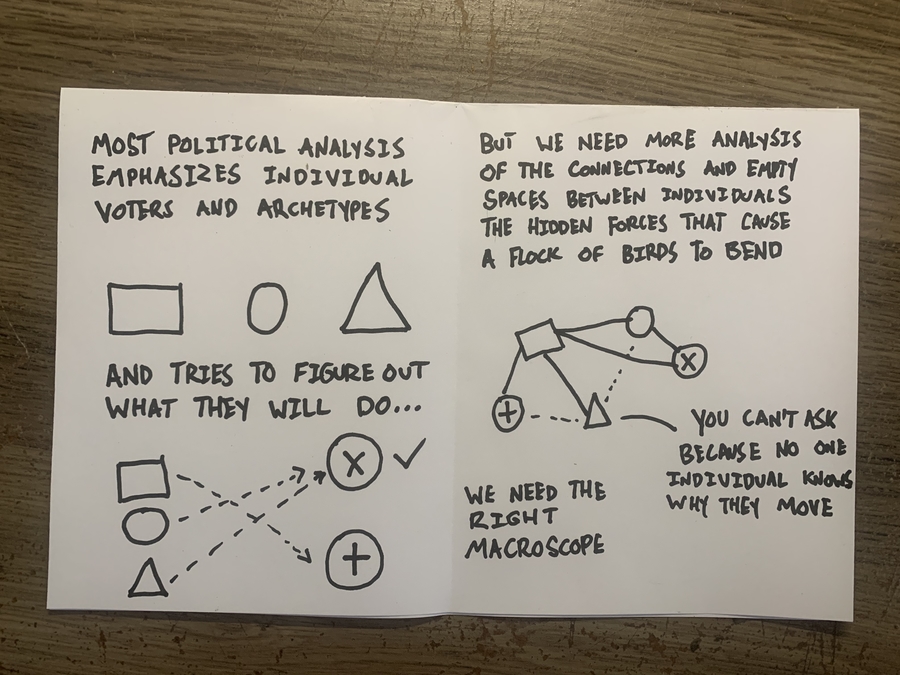 MOST POLITICAL ANALYSIS
EMPHASIZES INDIVIDUAL
VOTERS AND ARCHETYPES
AND TRIES TO FIGURE OUT
WHAT THEY WILL DO...
X ✓
+
BUT WE NEED MORE ANALYSIS
OF THE CONNECTIONS AND EMPTY
SPACES BETWEEN INDIVIDUALS
THE HIDDEN FORCES THAT CAUSE
A FLOCK OF BIRDS TO BEND
X
+
YOU CAN'T ASK
BECAUSE NO ONE
INDIVIDUAL KNOWS
WHY THEY MOVE
WE NEED THE
RIGHT
MACROSCOPE